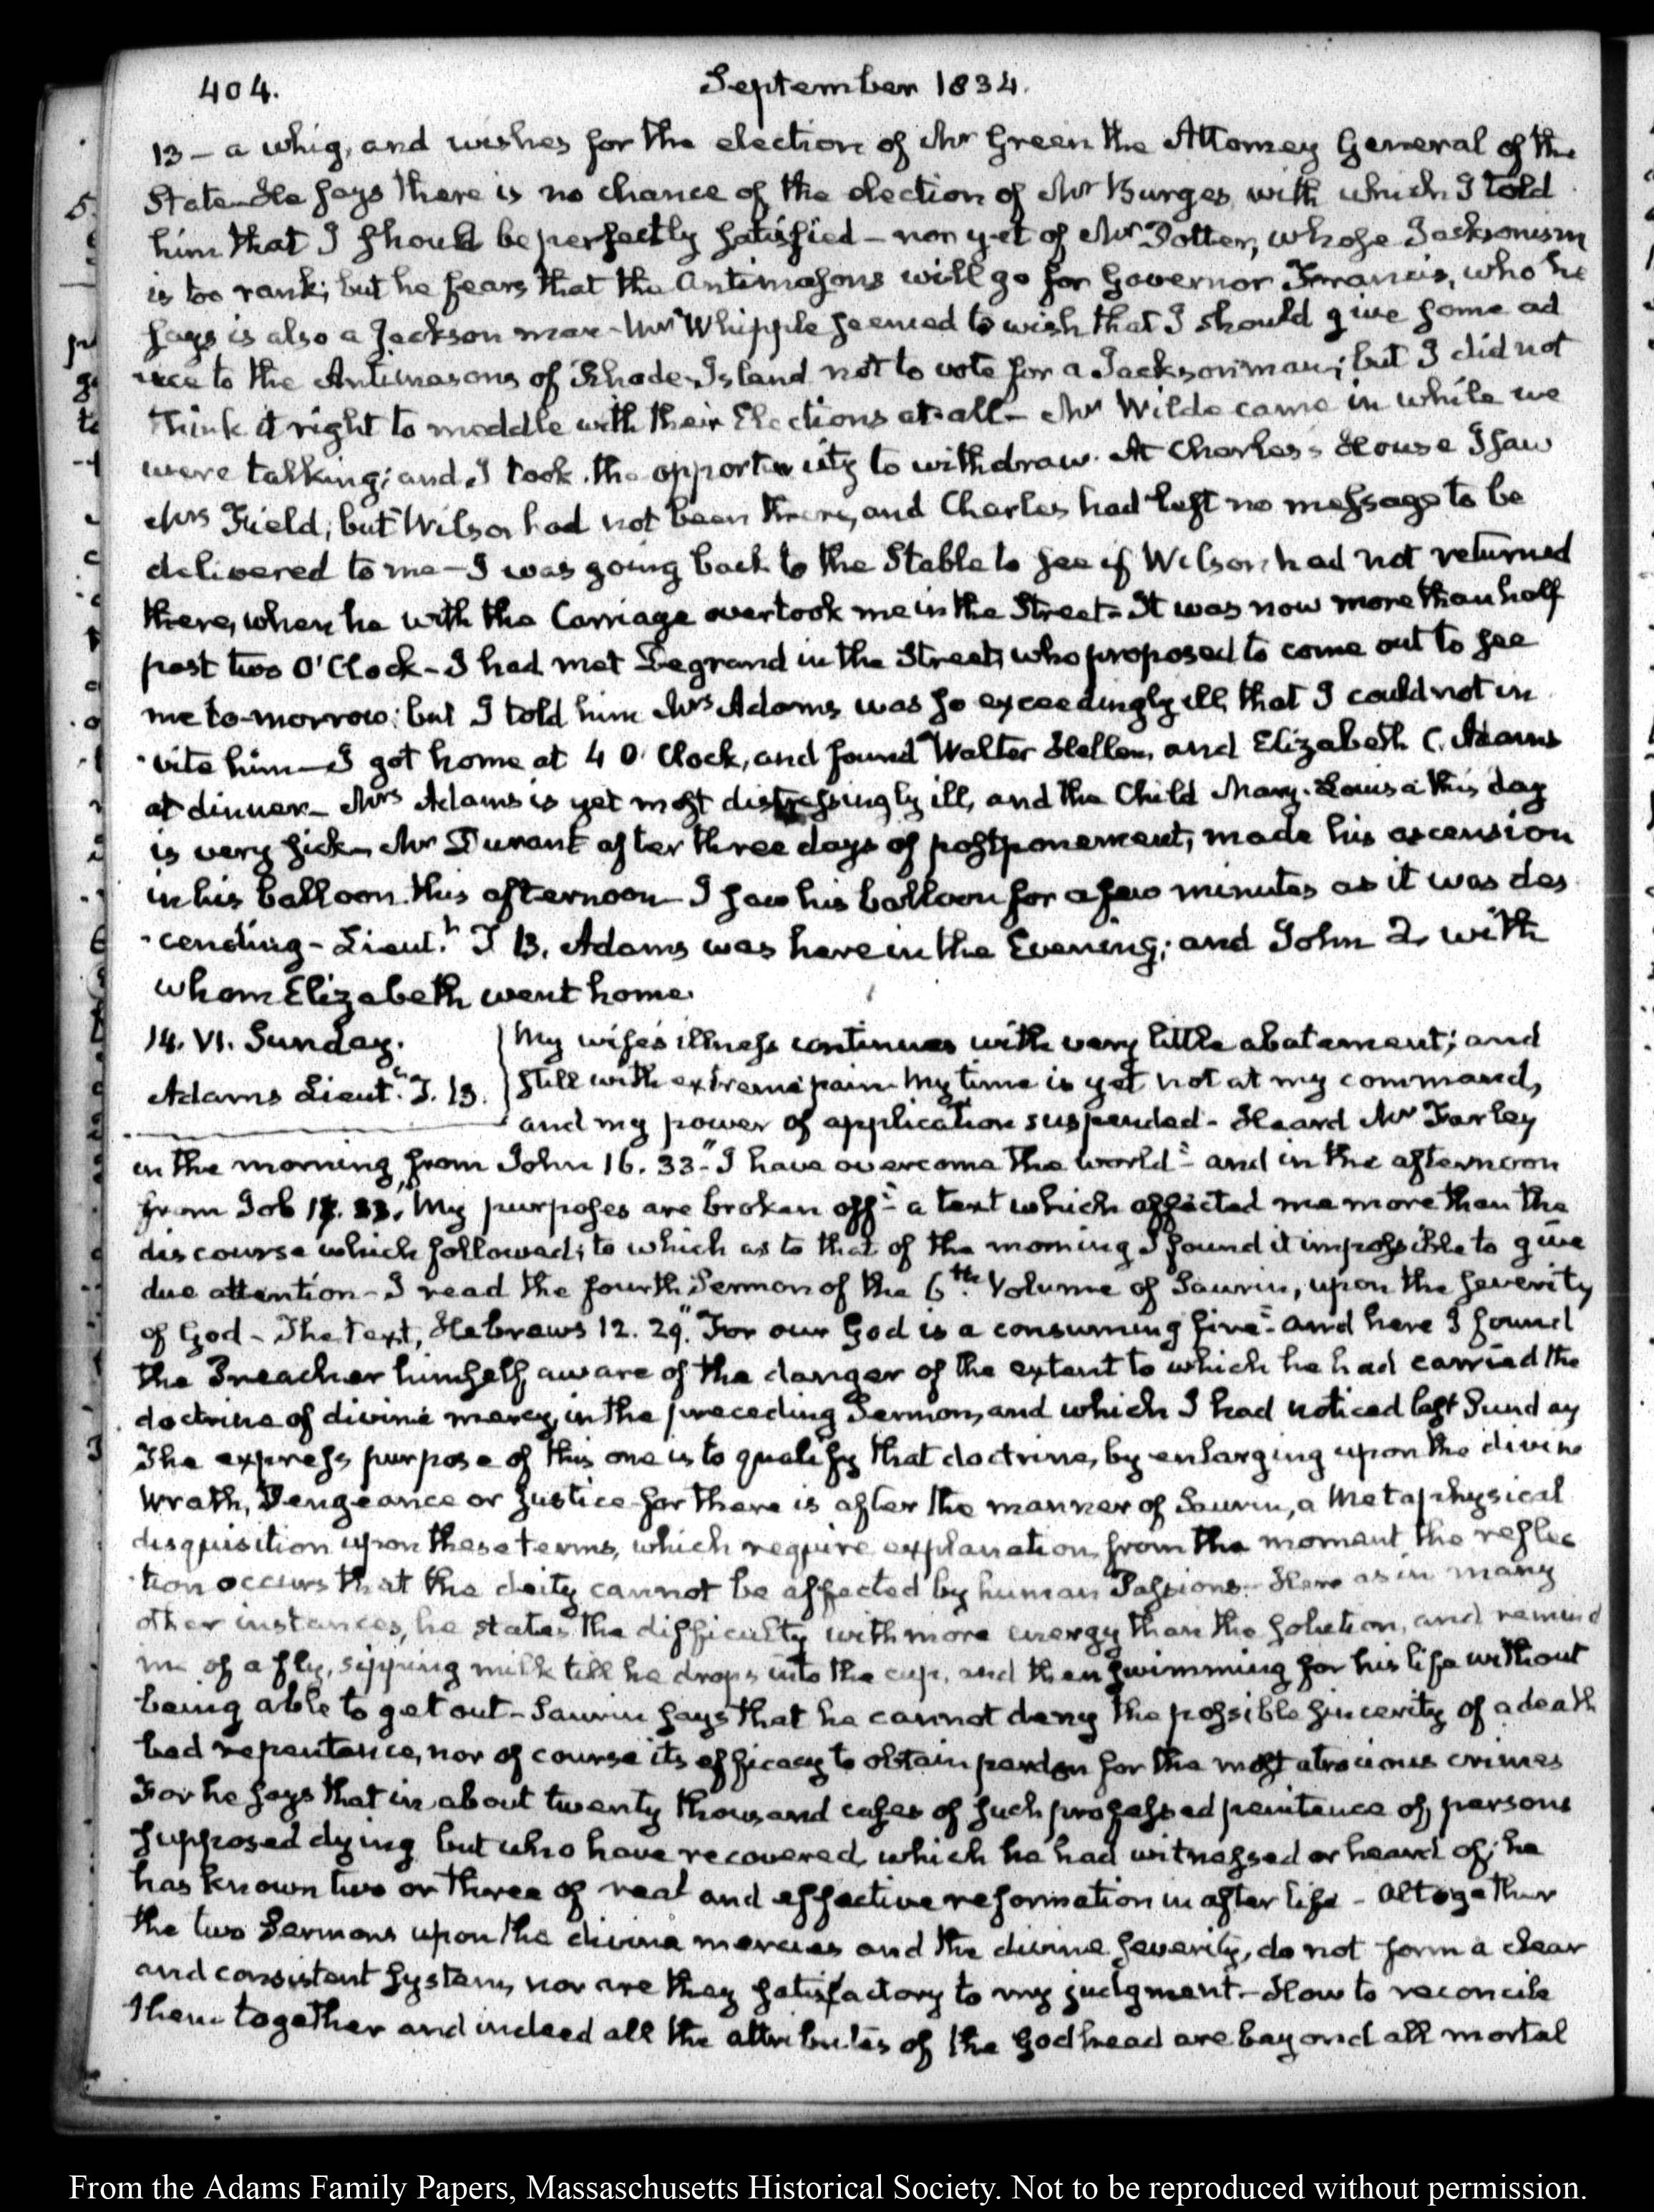 404.
September 1834.
13 – a whig, and wishes for the election of Mr Green the Attorney General of the
State – He says there is no chance of the election of Mr Burges, with which I told
him that I should be perfectly satisfied – nor yet of Mr Potter, whose Jacksonism
is too rank; but he fears that the Antimasons will go for Governor Francis, who he
says is also a Jackson man – Mr Whipple seemed to wish that I should give some ad
vice to the Antimasons of Rhode-Island not to vote for a Jackson man; but I did not
think it right to meddle with their Elections at all – Mr Wilde came in while we
were talking; and I took the opportunity to withdraw. At Charles's House I saw
Mrs Field; but Wilson had not been there, and Charles had left no message to be
delivered to me – I was going back to the Stable to see if Wilson had not returned
there, when he with the Carriage overtook me in the Street – It was now more than half
past two O'Clock – I had met Degrand in the Street, who proposed to come out to see
me to-morrow; but I told him Mrs Adams was so exceedingly ill, that I could not in
-vite him – I got home at 4 O'Clock, and found Walter Hellen, and Elizabeth C. Adams
at dinner – Mrs Adams is yet most distressingly ill, and the Child Mary-Louisa this day
is very sick – Mr Durant after three days of postponement, made his ascension
in his balloon this afternoon – I saw his balloon for a few minutes as it was des
-cending – Lieut.t T B. Adams was here in the Evening; and John 2. with
whom Elizabeth went home.
14. VI. Sunday.
Adams Lieut.t T. B.
My wife's illness continues with very little abatement; and
still with extreme pain – My time is yet not at my command,
and my power of application suspended – Heard Mr Farley
in the morning from John 16. 33. "I have overcome the world" – and in the afternoon
from Job 17. "My purposes are broken off" – a text which affected me more than the
discourse which followed; to which as to that of the morning I found it impossible to give
due attention – I read the fourth Sermon of the 6th. Volume of Saurin, upon the severity
of God – The text, Hebrews 12. 29. "For our God is a consuming fire" – and here I found
the Preacher himself aware of the danger of the extent to which he had carried the
doctrine of divine mercy, in the preceding Sermon, and which I had noticed last Sunday
The express purpose of this one is to qualify that doctrine, by enlarging upon the divine
Wrath, Vengeance or Justice – for there is after the manner of Saurin, a Metaphysical
disquisition upon these terms, which require explanation from the moment the reflec
-tion occurs that the deity cannot be affected by human Passions – Here as in many
other instances, he states the difficulty with more energy than the solution, and remind
me of a fly, sipping milk till he drops into the cup, and then swimming for his life without
being able to get out – Saurin says that he cannot deny the possible sincerity of a death
bed repentance, nor of course its efficacy to obtain pardon for the most atrocious crimes
For he says that in about twenty thousand cases of such professed penitence of persons
supposed dying but who have recovered, which he had witnessed or heard of; he
has known two or three of real and effective reformation in after life – Altogether
the two Sermons upon the divine mercies and the divine severity, do not form a clear
and consistent system, nor are they satisfactory to my judgment – How to reconcile
them together and indeed all the attributes of the Godhead are beyond all mortal
From the Adams Family Papers, Massachusetts Historical Society. Not to be reproduced without permission.